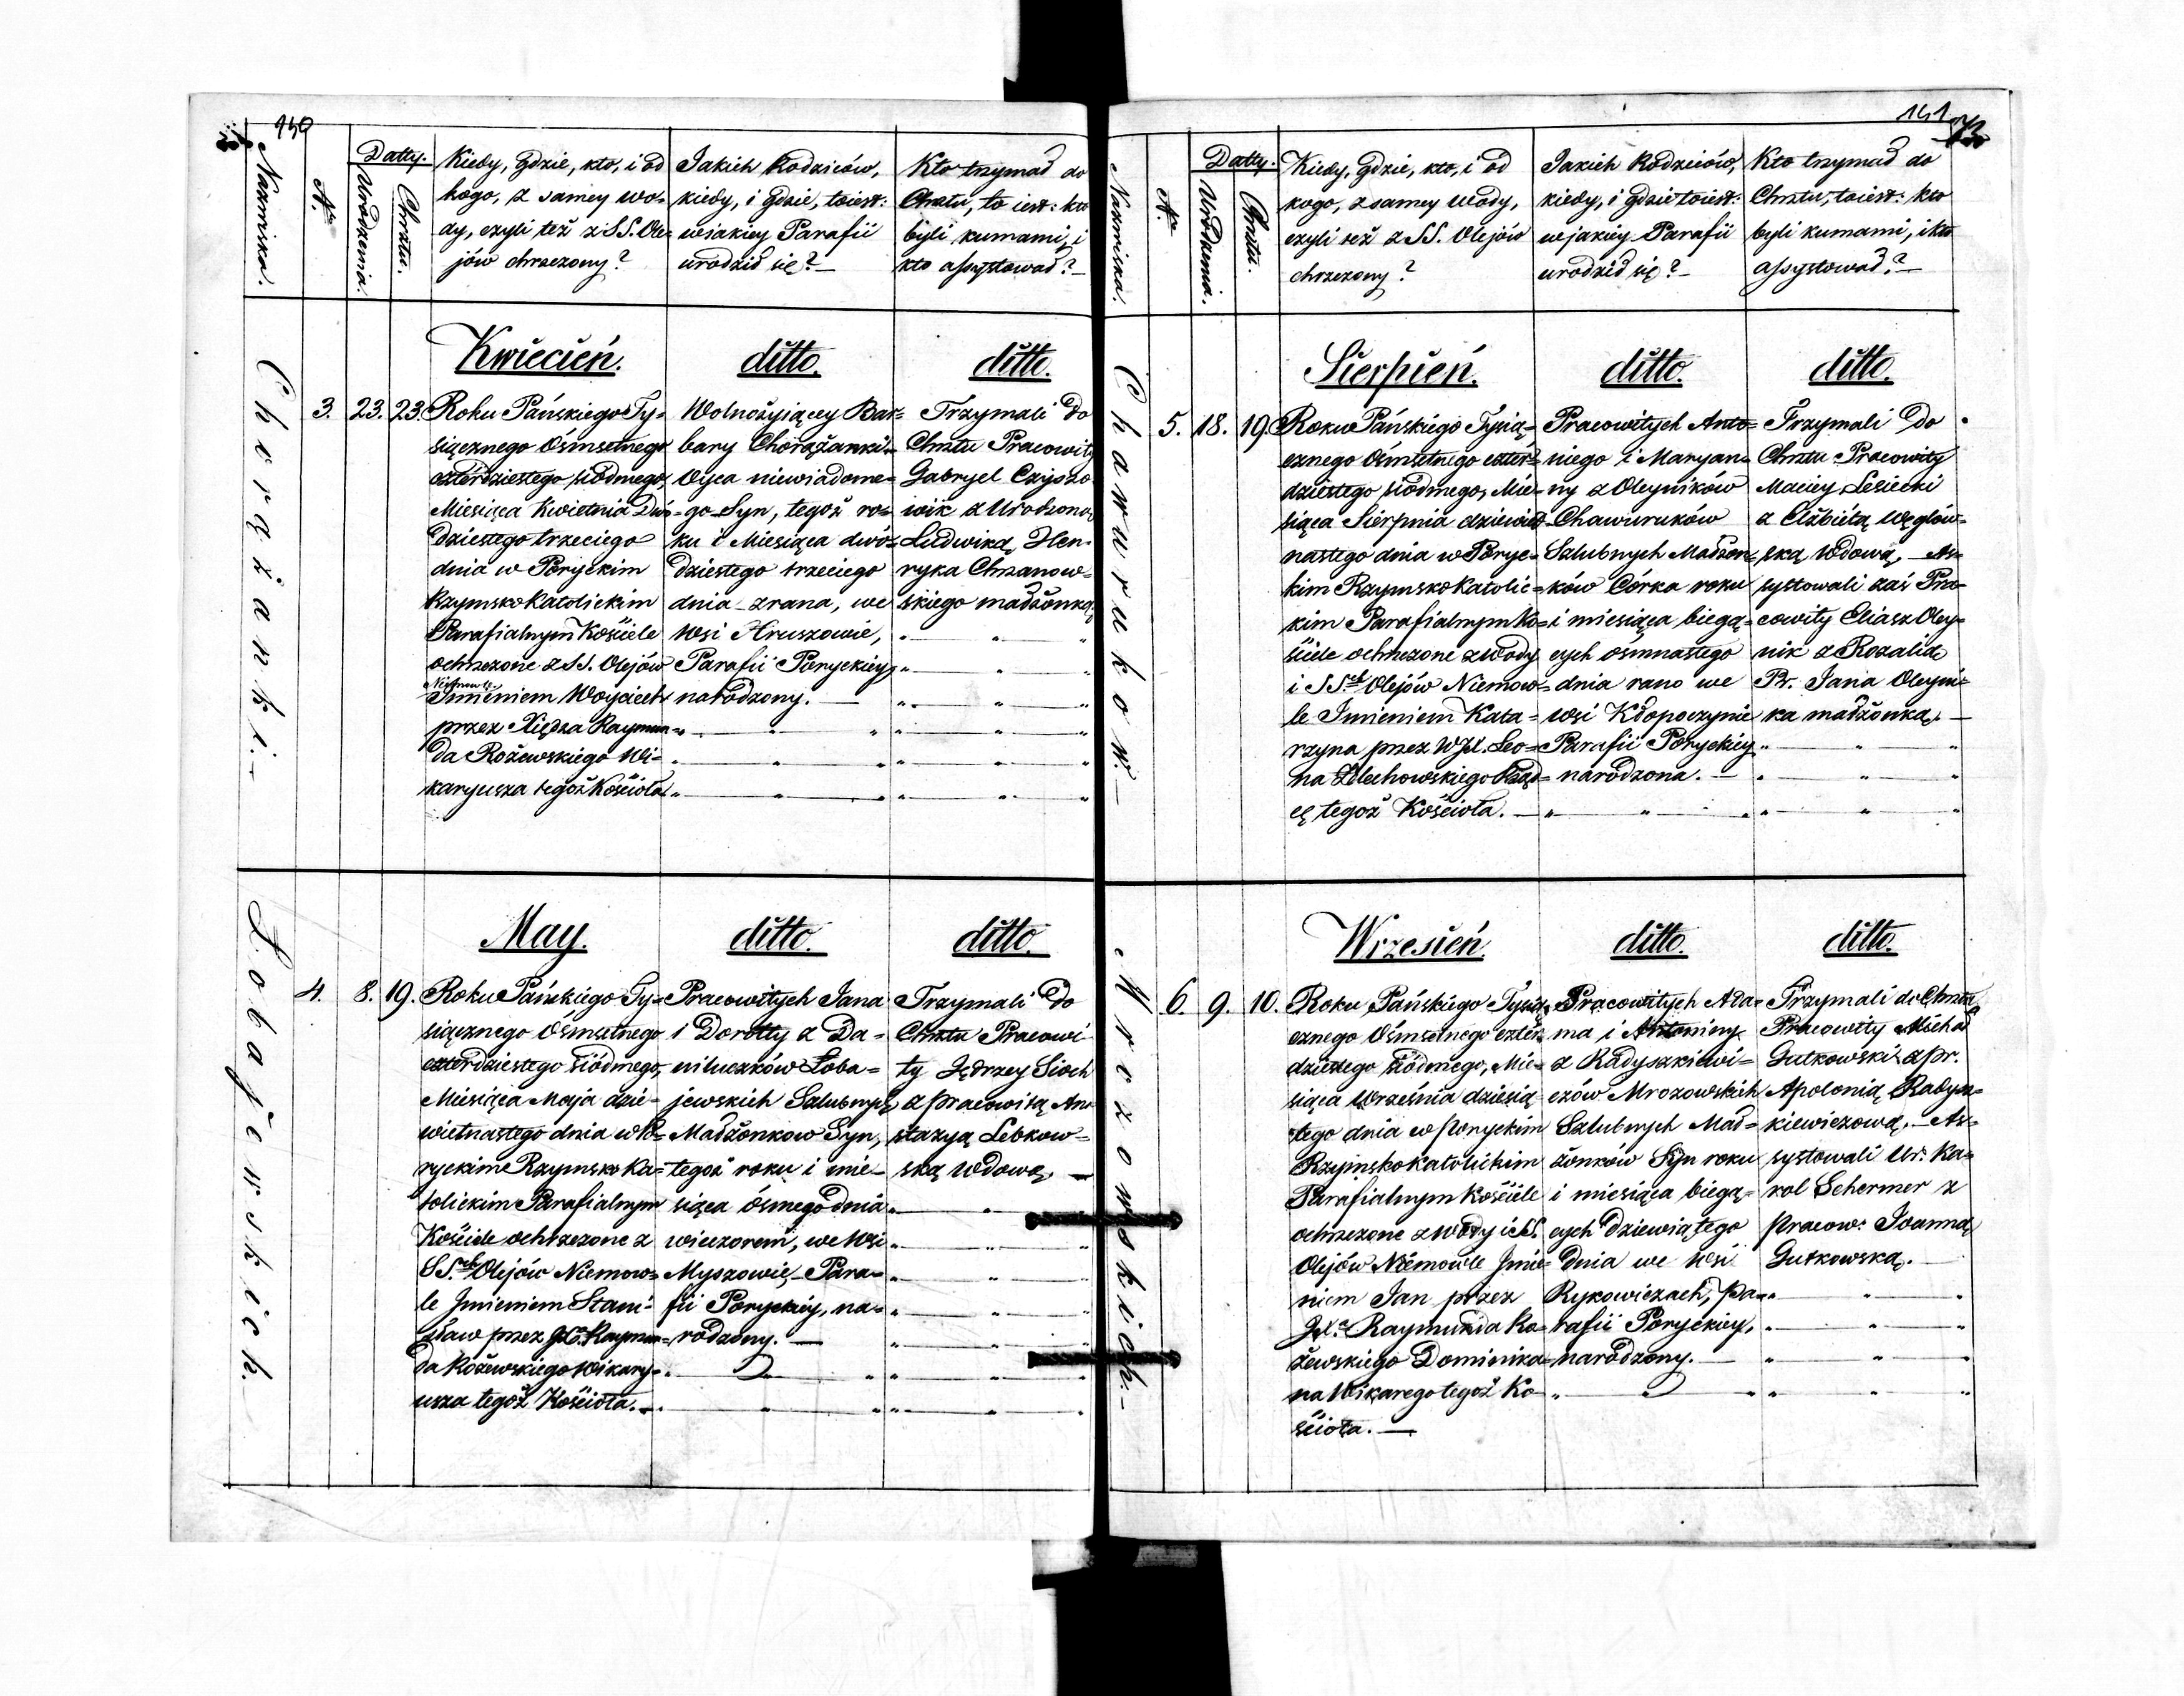 150
Nazwiska.
N.o
Datty.
Urodzenia.
Chrztu.
Kiedy, gdzie, kto, i od
kogo, z samey wo-
dy, czyli też z SS. Ole-
jów chrzczony?
Jakich Rodziców,
kiedy, i gdzie, toiest:
w jakiey Parafii
urodził się? —
Kto trzymał do
Chrztu, to iest: kto
byli kumami, i
kto assystował? —
Chorążanki. —
3.
23.
23.
Kwiecień.
Roku Pańskiego Ty=
siącznego Ośmsetnego
czterdziestego siódmego,
Miesiąca Kwietnia Dwó-
dziestego trzeciego
dnia w Poryckim
Rzymsko Katolickim
Parafialnym Kościele
ochrzczone z SS. Olejów
Niemowle
Jmieniem Woyciech
przez Xiędza Raymun=
da Rożewskiego Wi=
karyusza tegoż Kościoła
ditto.
Wolnożyiącey Bar=
bary Chorążanki
Oyca niewiadome=
go Syn, tegoż ro=
ku i Miesiąca dwó=
dziestego trzeciego
dnia zrana, we
Wsi Hruszowie,
Parafii Poryckiey
narodzony. —
ditto.
Trzymali do
Chrztu Pracowity
Gabryel Czyszo
wik z Urodzoną
Ludwiką, Hen=
ryka Chrzanow=
skiego małżonką
Łobajewskich.
4.
8.
19.
May.
Roku Pańskiego Ty=
siącznego Ośmsetnego
czterdziestego siódmego,
Miesiąca Maja dzie-
więtnastego dnia w Po=
ryckim Rzymsko Ka=
tolickim Parafialnym
Kościele ochrzczone z
SS.ch Olejów Niemow=
le Jmieniem Stani=
sław przez JX. Raymun=
da Rożewskiego Wikary=
usza tegoż Kościoła. —
ditto.
Pracowitych Jana
i Dorotty z Da=
niluczków Łoba=
jewskich Szlubnych
Małżonkow Syn,
tegoż roku i mie=
siąca ósmego dnia
wieczorem, we Wsi
Myszowie, Para=
fii Poryckiey, na=
rodzony. —
ditto.
Trzymali do
Chrztu Pracowi=
ty Jędrzey Sioch
z pracowitą Ana
stazyą Lebkow=
ską Wdową. —
151
Nazwiska.
N.o
Datty.
Urodzenia.
Chrztu.
Kiedy, gdzie, kto, i od
kogo, z samey wody,
czyli też z SS. Olejów
chrzczony?
Jakich Rodziców,
kiedy, i gdzie toiest:
w jakiey Parafii
urodził się? —
Kto trzymał do
Chrztu, toiest: kto
byli kumami, i kto
assystował? —
Chawuruków. —
5.
18.
19.
Sierpień.
Roku Pańskiego Tysią=
cznego Ośmsetnego czter=
dziestego siódmego, Mie=
siąca Sierpnia dziewięt=
nastego dnia w Poryc=
kim Rzymsko Katolic=
kim Parafialnym Ko=
ściele ochrzczone z wody
i SS.ch Olejów Niemow=
le Jmieniem Kata=
rzyna przez WJX. Leo=
na Zelechowskiego Rząd=
cę tegoż Kościoła. —
ditto.
Pracowitych Anto=
niego i Maryan=
ny z Oleyników
Chawuruków
Szlubnych Małżon=
ków Córka roku
i miesiąca biegą=
cych ósmnastego
dnia rano we
Wsi Kłopoczynie
Parafii Poryckiey
narodzona. —
ditto.
Trzymali do
Chrztu Pracowity
Maciey Lesiecki
z Elżbiétą Węglów=
ską Wdową, — As=
systowali zaś Pra=
cowity Eliasz Oley=
nik z Rozalią
Pr. Jana Oleyni=
ka małżonką. —
Mrozowskich. —
6.
9.
10.
Wrzesień.
Roku Pańskiego Tysią=
cznego Ośmsetnego czter=
dziestego siódmego, Mie=
siąca Września dziesią
tego dnia w Poryckim
Rzymsko Katolickim
Parafialnym Kościele
ochrzczone z wody i SS.
Olejów Niemowle Jmie=
niem Jan przez
JX.a Raymunda Ro=
żewskiego Dominika=
na Wikarego tegoż Ko=
ścioła. —
ditto.
Pracowitych Ada=
ma i Antoniny
z Radyszkiewi=
czów Mrozowskich
Szlubnych Mał=
żonków Syn roku
i miesiąca biegą=
cych dziewiątego
dnia we Wsi
Rykowiczach, Pa=
rafii Poryckiey,
narodzony. —
ditto.
Trzymali do Chrztu
Pracowity Michał
Gutkowski z pr.
Apolonią Radysz=
kiewiczową. — As=
systowali Ur. Ka=
rol Schermer z
pracow: Joanną
Gutkowską. —